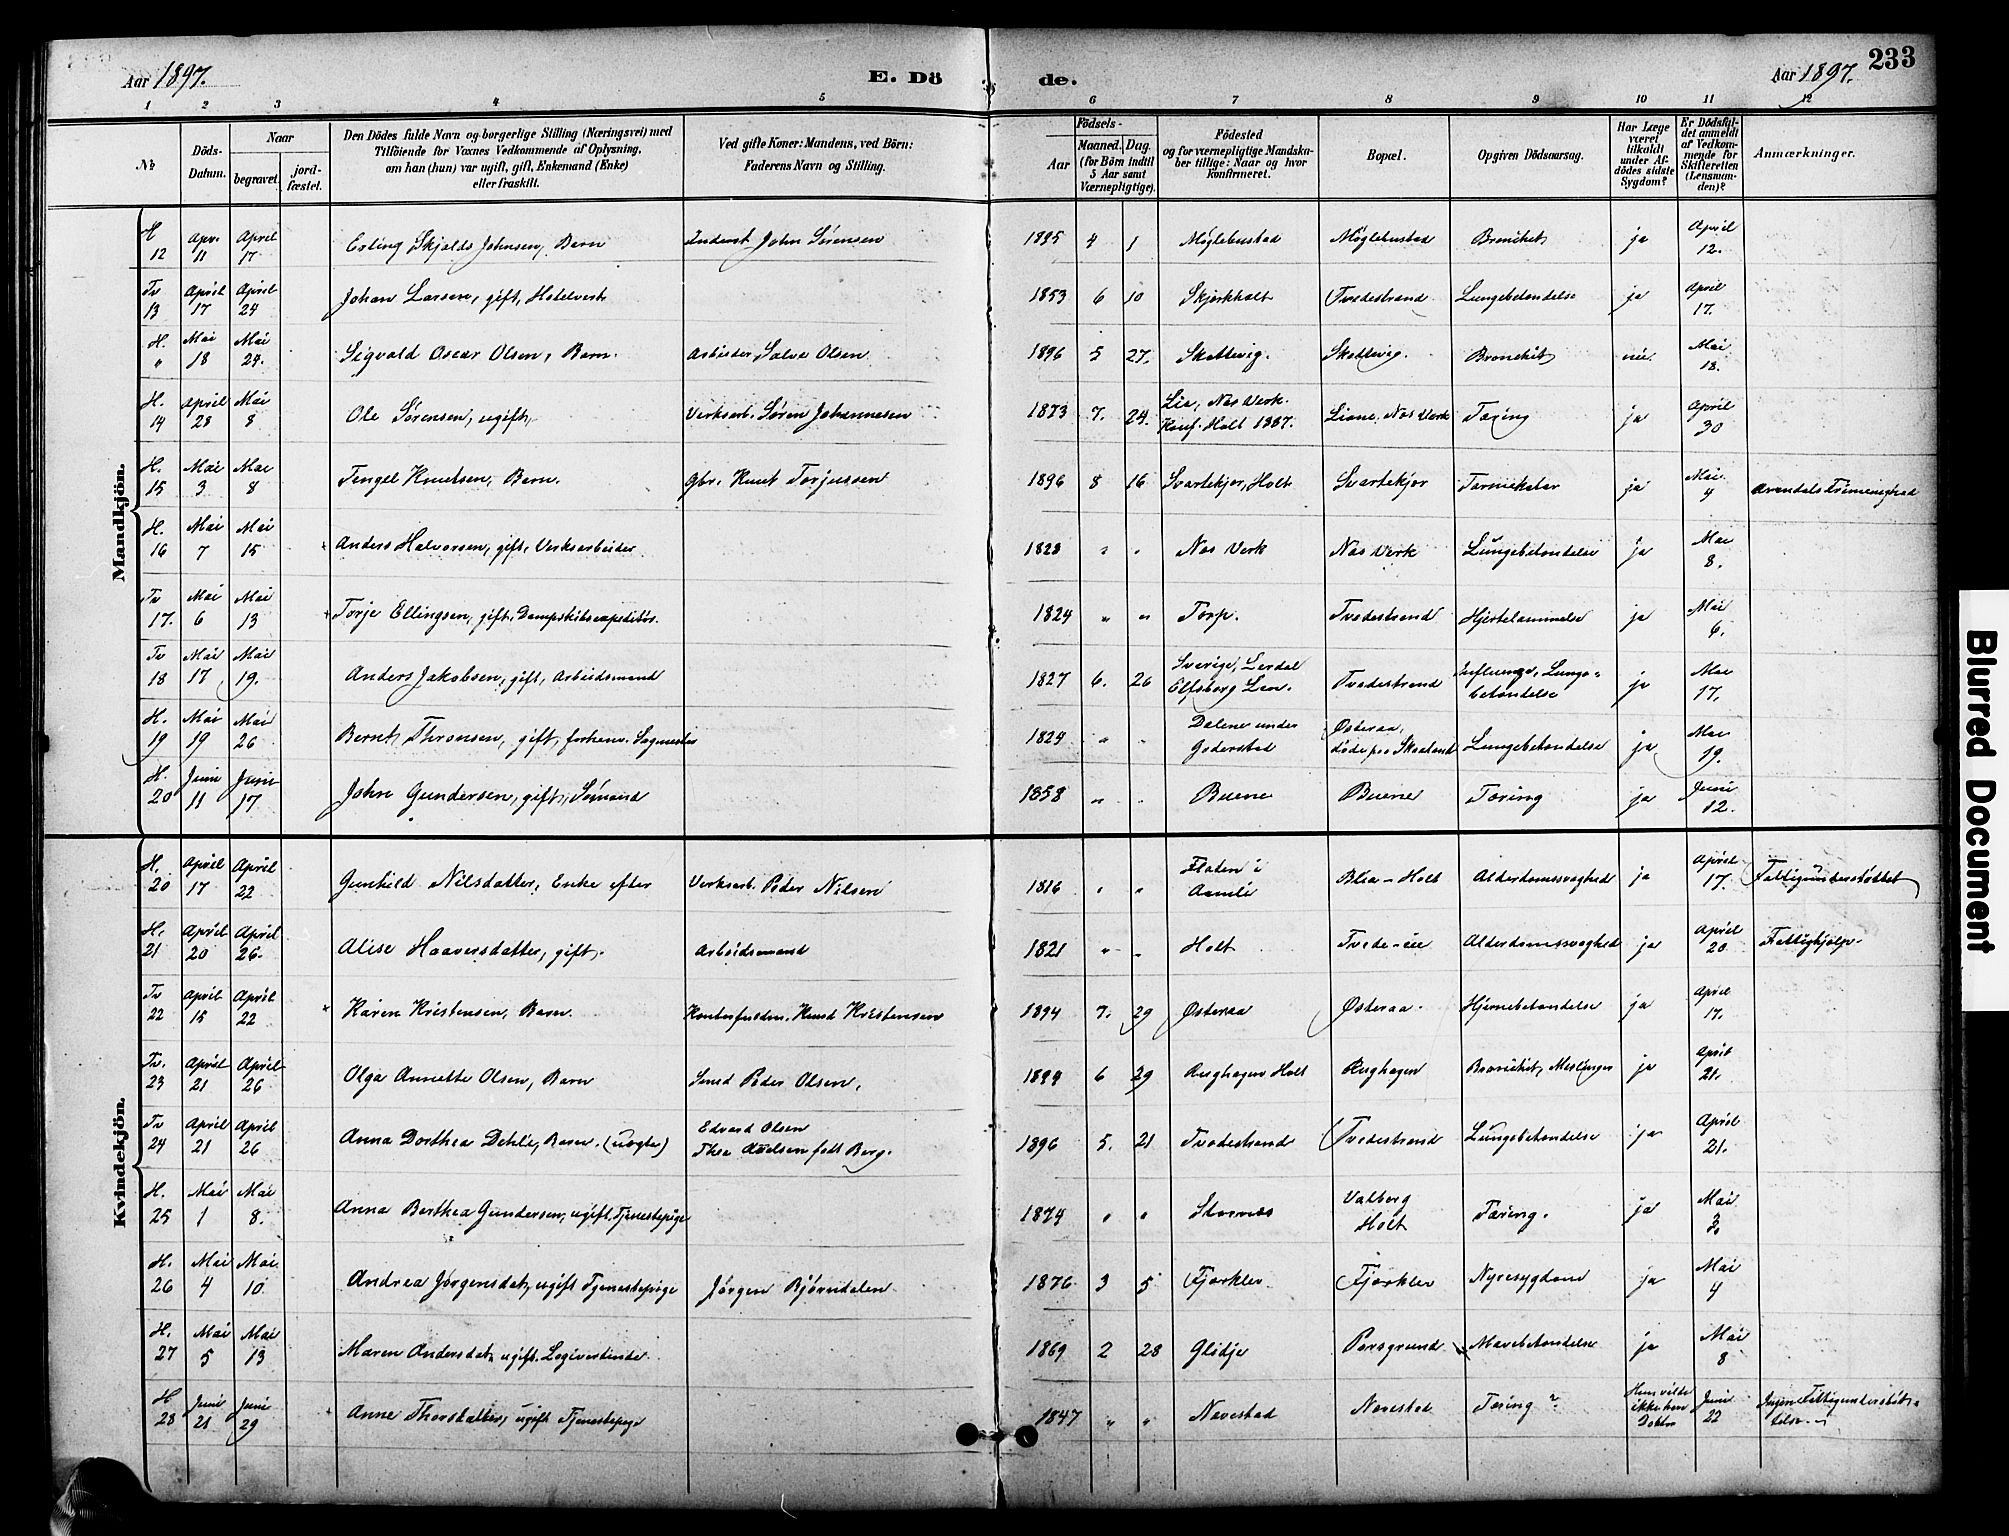 Aar 1897. E. Dö de. Aar 1897. 233
1 2 3 4 5 6 7 8 9 10 11 12
No
Döds-Datum.
Naar
begravet.
jord-fæstet.
Den Dödes fulde Navn og borgerlige Stilling (Næringsvei) med
Tilföiende for Voxnes Vedkommende af Oplysning,
om han (hun) var ugift, gift, Enkemand (Enke)
eller fraskilt.
Ved gifte Koner: Mandens, ved Börn:
Faderens Navn og Stilling.
Födsels-
Aar
Maaned. Dag.
(for Börn indtil
5 Aar samt
Værnepligtige).
Födested
og for værnepligtige Mandska-
ber tillige: Naar og hvor
konfirmeret.
Bopæl.
Opgiven Dödsaarsag.
Har Læge
været
tilkaldt
under Af-
dödes sidste
Sygdom?
Er Dödsfal-
det anmeldt
af Vedkom-
mende for
Skifteretten
(Lensman-
den)?
Anmærkninger.
Mandkjön.
H 12 Apr. 11 April 17 Erling Skjolds Johnsen, Barn Inderst John Sørensen 1895 4 1 Møglebustad Møglebustad Bronchit ja April 12.
Tv 13 April 17 April 24 Johan Larsen, gift, Hotelvert 1853 6 10 Skjerkholt Tvedestrand Lungebetændelse ja April 17.
H. " Mai 18 Mai 24. Sigvald Oscar Olsen, Barn. Arbeider Salve Olsen 1896 5 27. Skottevig. Skottevig. Bronchit nei. Mai 18.
H. 14 April 28 Mai 8 Ole Sørensen, ugift, Verksarb. Søren Johannesen 1873 7. 24. Lia, Nes Verk. Konf. Holt 1887. Liane, Nes Verk Tæring ja April 30
H. 15 Mai 3 Mai 8 Tengel Knutsen, Barn. Gbr. Knut Torjussen 1896 8 16 Svartekjer, Holt Svartekjer Tarmkatar ja Mai 4 Arendals Frimenighed
H. 16 Mai 7 Mai 15 Anders Halvorsen, gift, Verksarbeider 1828 " " Nes Verk Nes Verk Lungebetændelse ja Mai 8.
Tv 17. Mai 6 Mai 13 Torje Ellingsen, gift, Dampskibsexpeditør. 1824 " " Torp. Tvedestrand Hjertelammelse ja Mai 6.
Tv 18 Mai 17 Mai 19. Anders Jakobsen, gift, Arbeidsmand 1827 6. 26 Sverige, Lerdal Elfsborg Len. Tvedestrand Influenza, Lungebetændelse ja Mai 17.
H. 19 Mai 19 Mai 26 Bernt Thronsen, gift, forhenv. Sagmester 1824 " " Dalene under Goderstad Østeraa, døde paa Skaaland Lungebetændelse ja Mai 19.
H. 20 Juni 11 Juni 17 John Gundersen, gift, Sømand 1858 " " Buene Buene Tæring ja Juni 12.
Kvindekjön.
H. 20 April 17 April 22 Gunhild Nilsdatter, Enke efter Verksarb. Peder Nilsen 1816 " " Flaten i Aamli Blia - Holt Alderdomssvaghed ja April 17. Fattigunderstøttet
H. 21 April 20 April 26. Alise Haaversdatter, gift. Arbeidsmand 1821 " " Holt Tvede-eie Alderdomssvaghed ja April 20 Fattighjelp.
Tv 22 April 15 April 22 Karen Kristensen, Barn. Knud Kristensen 1894 7. 29 Østeraa Østeraa. Hjernebetændelse ja April 17.
Tv. 23 April 21 April 26 Olga Annette Olsen, Barn Smed Peder Olsen, 1894 6 29 Berghagen Holt Berghagen Bronchit, Meslinger ja April 21.
Tv 24 April 21 April 26 Anna Dorthea Dehli, Barn. (uægte) Edvard Olsen Thea Axelsen født Berg. 1896 5. 21 Tvedestrand Tvedestrand Lungebetændelse ja April 21.
H. 25 Mai 1 Mai 8. Anna Berthea Gundersen, ugift, Tjenestepige 1874 " " Storenes Valberg Holt Tæring. ja Mai 3.
H. 26 Mai 4 Mai 10. Andrea Jørgensdat, ugift Tjenestepige Jørgen Bjørndalen 1876 3 5 Fjærkler Fjærkler Nyresygdom ja Mai 4
H. 27 Mai 5 Mai 13 Maren Andersdat, ugift, Logivertinde. 1869 2 28 Glidje Porsgrund Mavebetændelse ja Mai 8
H 28 Juni 21 Juni 29 Anne Thorsdatter, ugift Tjenestepige 1847 " " Navestad Navestad Tæring? Hun vilde ikke have Doktor Juni 22 Ingen Fattigunderstøttelse
Blurred Document